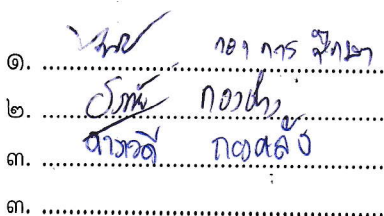 ๑. กองการศึกษา
๒. กองช่าง
๓. ดารวดี กองคลัง
๓.